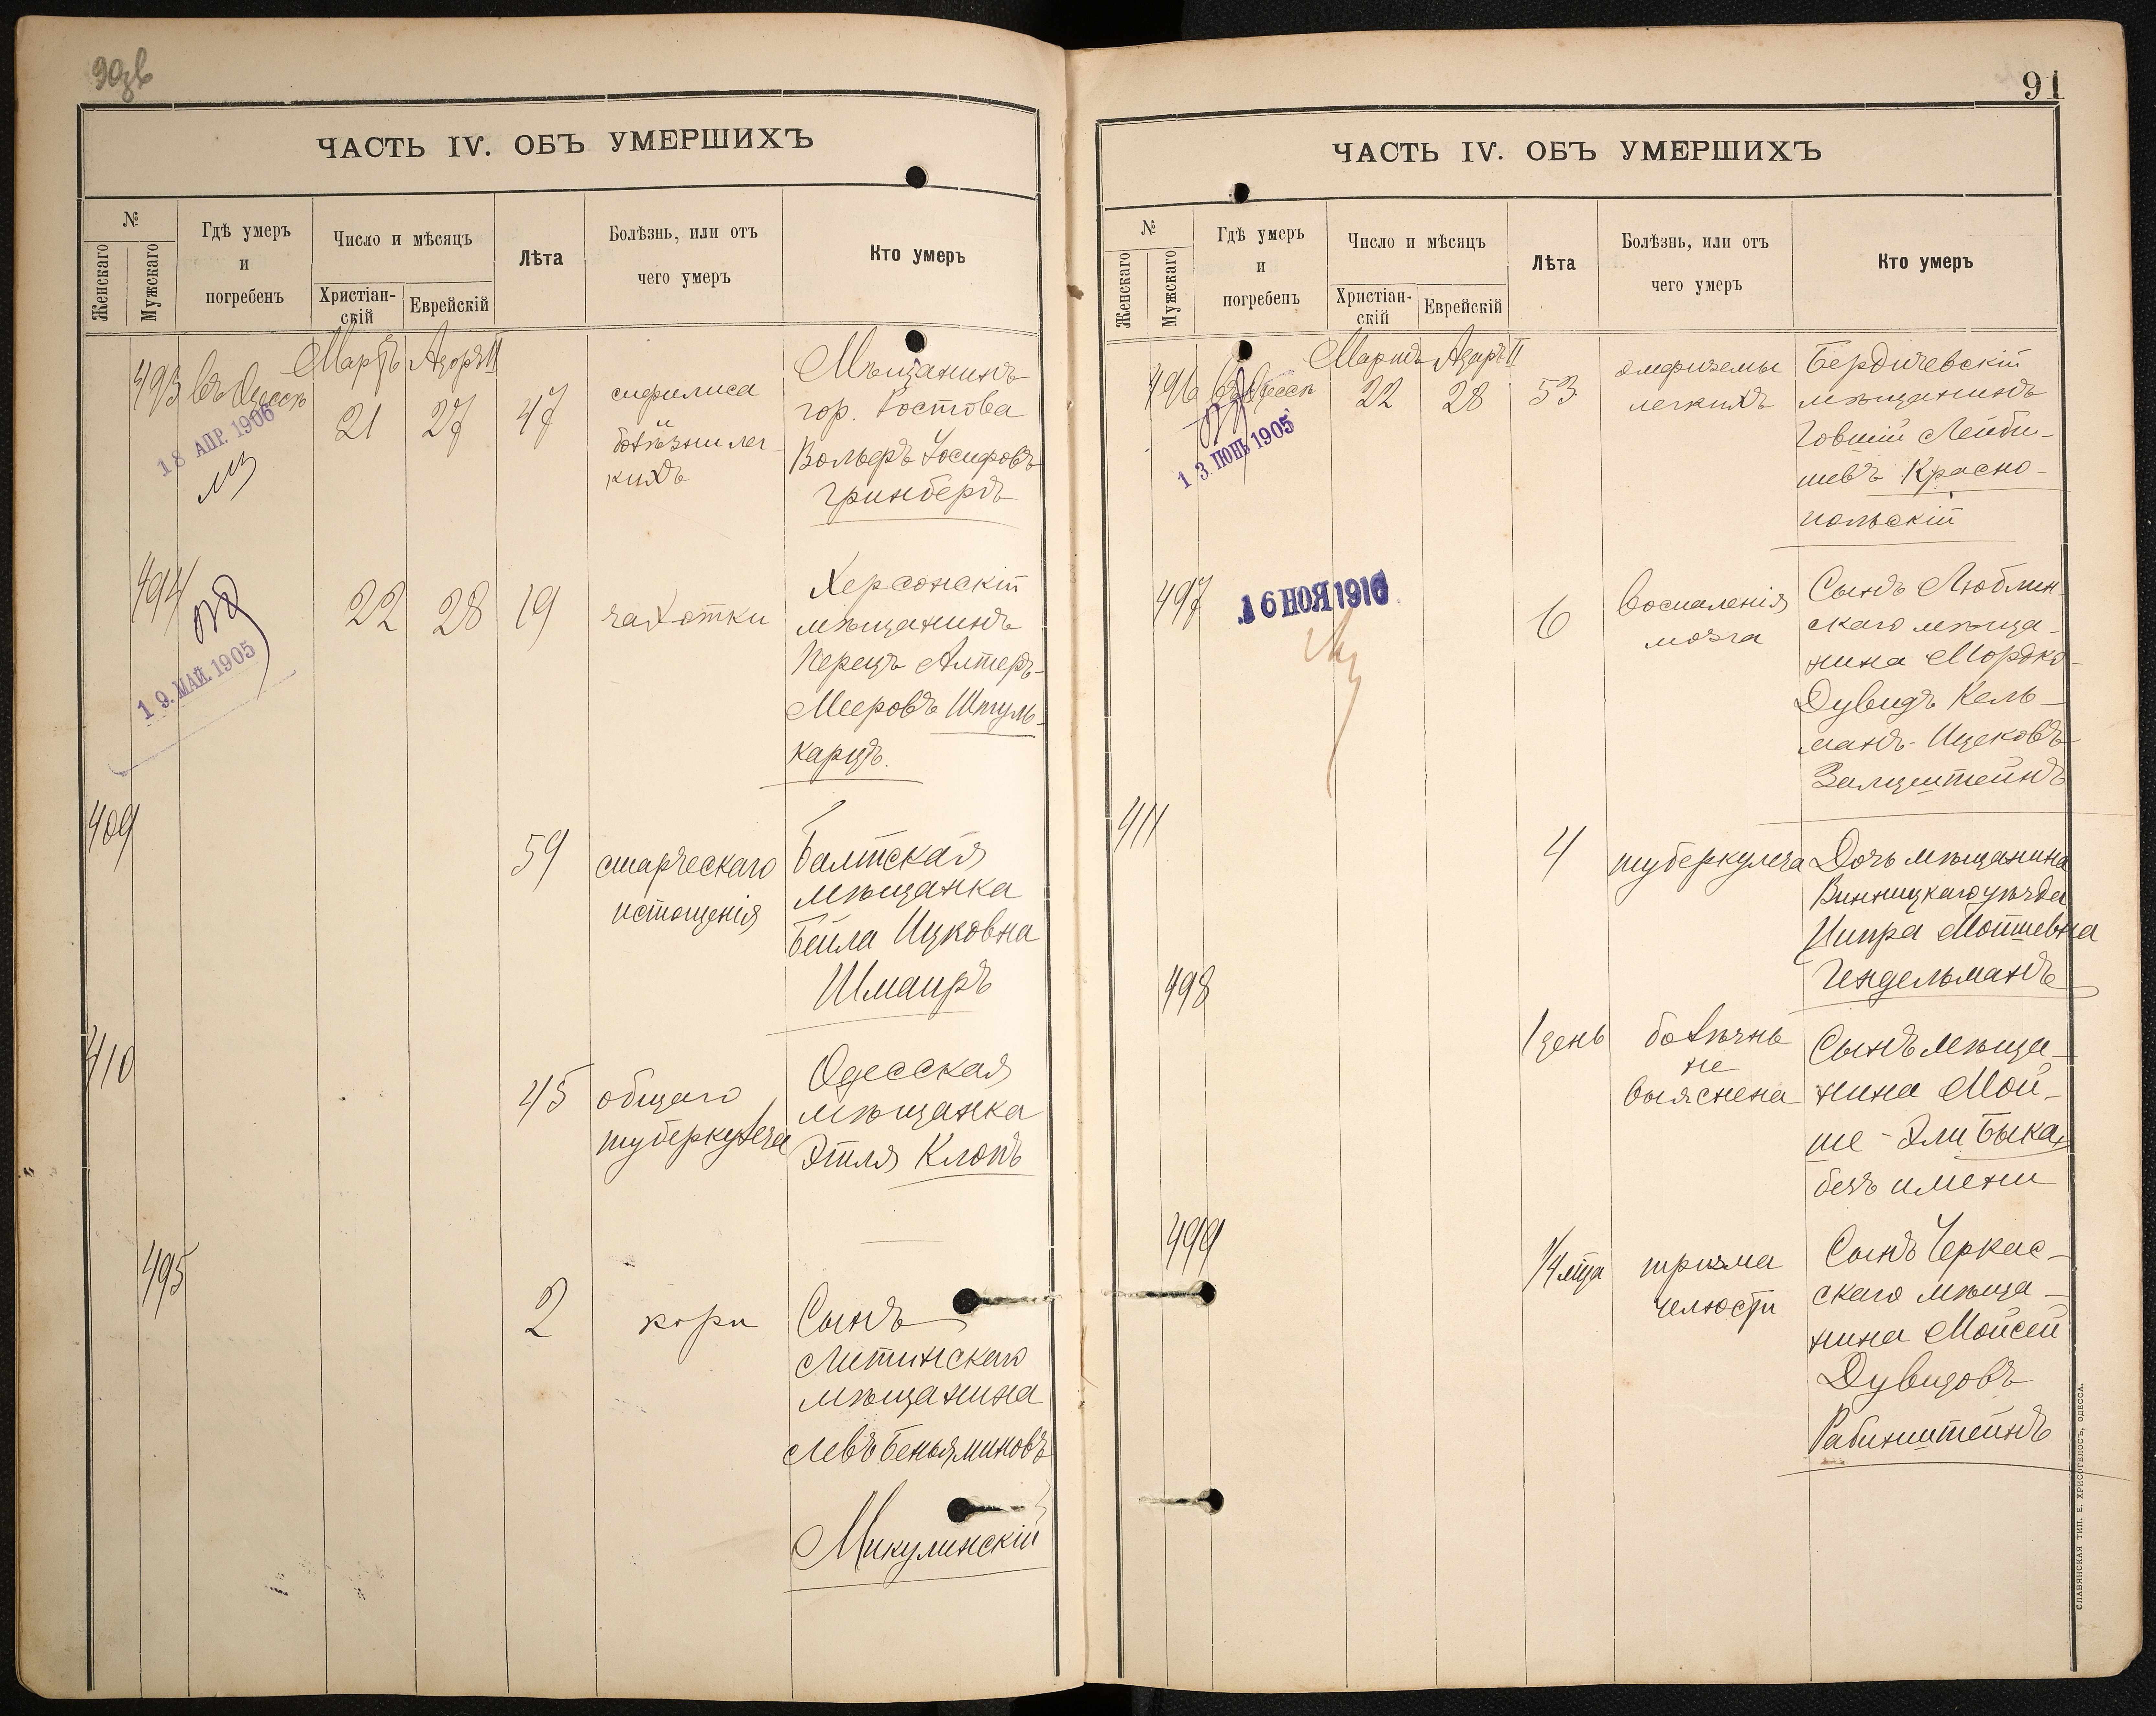 90об
ЧАСТЬ IV. ОБЪ УМЕРШИХЪ
№
Женскаго
Мужскаго
Гдѣ умеръ
и
погребенъ
Число и мѣсяцъ
Христіан-
скій
Еврейскій
Лѣта
Болѣзнь, или отъ
чего умеръ
Кто умеръ
Мартъ Адаръ II
493 въ Одессѣ 21 27 47
18 АПР. 1906
сифилиса
и
болѣзни лег-
кихъ
Мѣщанинъ
гор. Ростова
Вольфъ Іосифовъ
Гринбергъ
494 22 28 19 чахотки
19. МАЙ. 1905
Херсонскій
мѣщанинъ
Перецъ Алтеръ-
Мееровъ Штуль-
карцъ.
409 59
старческаго
истощенія
Балтская
мѣщанка
Бейла Ицковна
Шмаиръ
410 45
общаго
туберкулеза
Одесская
мѣщанка
Этля Клопъ
495 2 кори
Сынъ
Литинскаго
мѣщанина
Левъ Беньяминовъ
Микулинскій
91
ЧАСТЬ IV. ОБЪ УМЕРШИХЪ
№
Женскаго
Мужскаго
Гдѣ умеръ
и
погребенъ
Число и мѣсяцъ
Христіан-
скій
Еврейскій
Лѣта
Болѣзнь, или отъ
чего умеръ
Кто умеръ
Мартъ Адаръ II
496 въ Одессѣ 22 28 53
13. ІЮНЬ 1905
эмфиземы
легкихъ
Бердичевскій
мѣщанинъ
Говшій Лейби-
шевъ Красно-
польскій
497 6
16 НОЯ 1916
воспаленія
мозга
Сынъ Люблин-
скаго мѣща-
нина Мордко-
Дувидъ Кель-
манъ-Ицековъ
Залцштейнъ
411 4 туберкулеза
Дочь мѣщанина
Винницкаго уѣзда
Ципра Мойшевна
Гендельманъ
498 1 день
болѣзнь
не
выяснена
Сынъ мѣща-
нина Мой-
ше-Эли Быка,
безъ имени
499 1/4 мца
тризма
челюсти
Сынъ Черкас-
скаго мѣща-
нина Мойсей
Дувидовъ
Рабинштейнъ
СЛАВЯНСКАЯ ТИП. Е. ХРИСОГЕЛОСЪ, ОДЕССА.